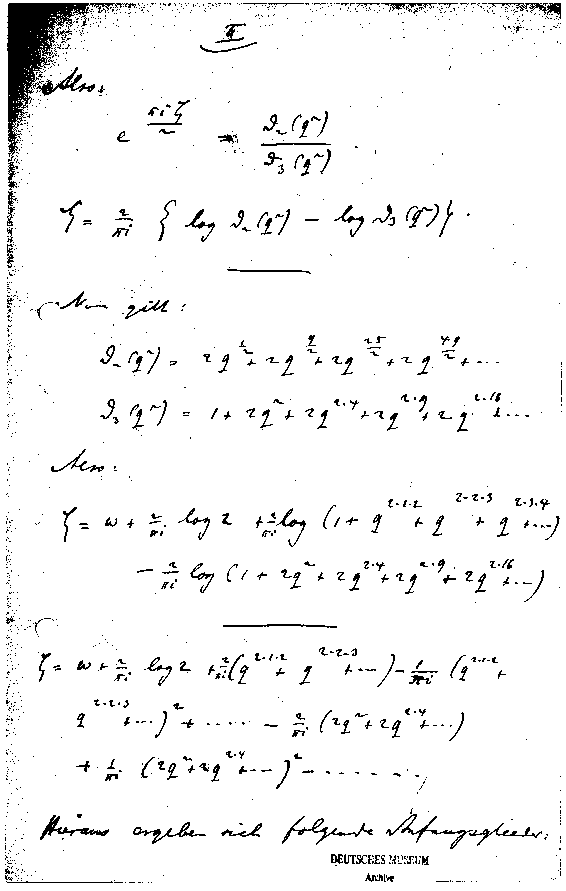 II
Also:
e^{πiζ/2} = ϑ₂(q²)/ϑ₃(q²).
ζ = 2/πi { log ϑ₂(q²) − log ϑ₃(q²) }.
Nun gilt:
ϑ₂(q²) = 2q^{1/2} + 2q^{9/2} + 2q^{25/2} + 2q^{49/2} + ...
ϑ₃(q²) = 1 + 2q² + 2q^{2·4} + 2q^{2·9} + 2q^{2·16} + ...
Also:
ζ = ω + 2/πi log 2 + 2/πi log (1 + q^{2·1·2} + q^{2·2·3} + q^{2·3·4} + ...)
− 2/πi log (1 + 2q² + 2q^{2·4} + 2q^{2·9} + 2q^{2·16} + ...)
ζ = ω + 2/πi log 2 + 2/πi (q^{2·1·2} + q^{2·2·3} + ...) − 1/πi (q^{2·1·2} +
q^{2·2·3} + ...)² + ..... − 2/πi (2q² + 2q^{2·4} + ...)
+ 1/πi (2q² + 2q^{2·4} + ...)² − ........,
Hieraus ergeben sich folgende Anfangsglieder:
DEUTSCHES MUSEUM
Archive